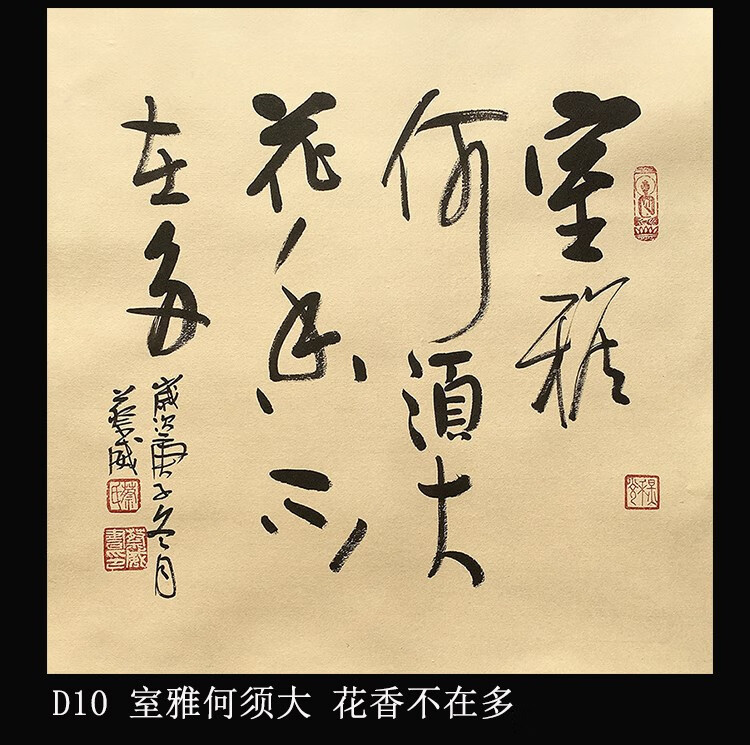 室雅
何須大
花香不
在多
歲次庚子冬月
蔡威
D10 室雅何须大 花香不在多